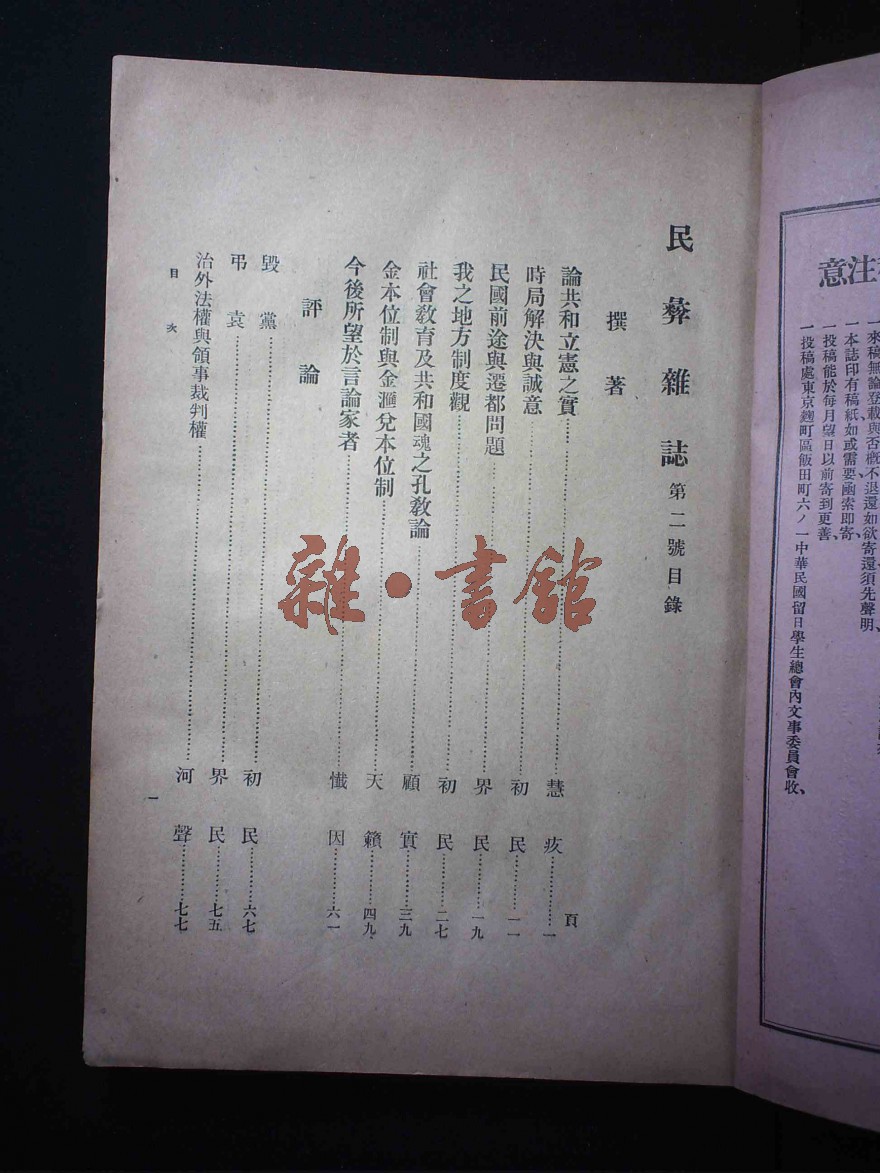 民彝雜誌 第二號目錄
撰著
頁
論共和立憲之實……慧 疚……一
時局解決與誠意……初 民……一一
民國前途與遷都問題……界 民……一九
我之地方制度觀……初 民……二七
社會教育及共和國魂之孔教論……顧 實……三九
金本位制與金滙兌本位制……天 籟……四九
今後所望於言論家者……懺 因……六一
評論
毀黨……初 民……六七
弔袁……界 民……七五
治外法權與領事裁判權……河 聲……七七
目次
一
雜·書館
注意
一來稿無論登載與否概不退還如欲寄還須先聲明、
一本誌印有稿紙如或需要函索即寄、
一投稿能於每月望日以前寄到更善、
一投稿處東京麹町區飯田町六ノ一中華民國留日學生總會內文事委員會收、